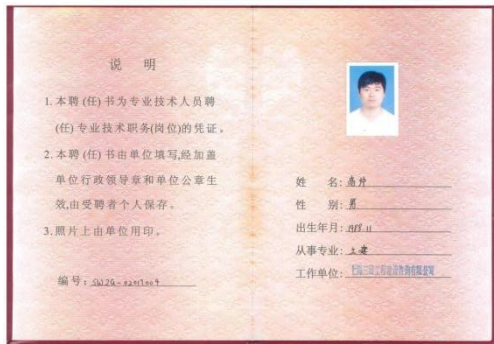 说 明
1. 本聘(任)书为专业技术人员聘
(任)专业技术职务(岗位)的凭证。
2. 本聘(任)书由单位填写,经加盖
单位行政领导章和单位公章生
效,由受聘者个人保存。
3. 照片上由单位用印。
编号:
姓 名:
性 别: 男
出生年月: 1988.11
从事专业: 土建
工作单位: